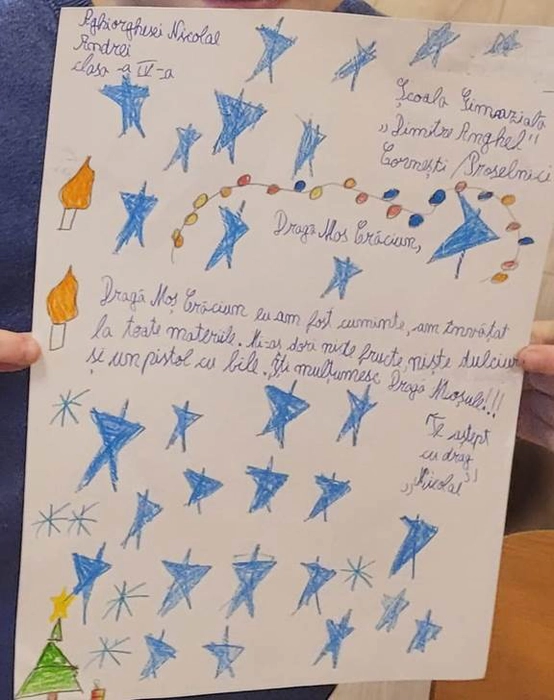 Aghiorghesei Nicolae
Andrei
clasa -a IV-a
Școala Gimnazială
„Dimitrie Anghel"
Cornești / Proselnici
Dragă Moș Crăciun,
Dragă Moș Crăciun eu am fost cuminte, am învățat
la toate materiile. Mi-aș dori niște fructe, niște dulciuri
și un pistol cu bile. Îți mulțumesc Dragă Moșule!!!
Te aștept
cu drag
„Nicolae"